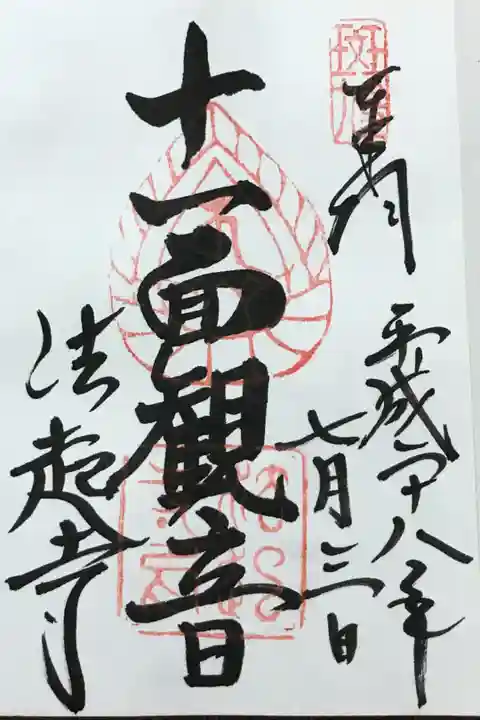 斑鳩
奉拝
平成二十八年
七月三日
十一面観音
法起寺